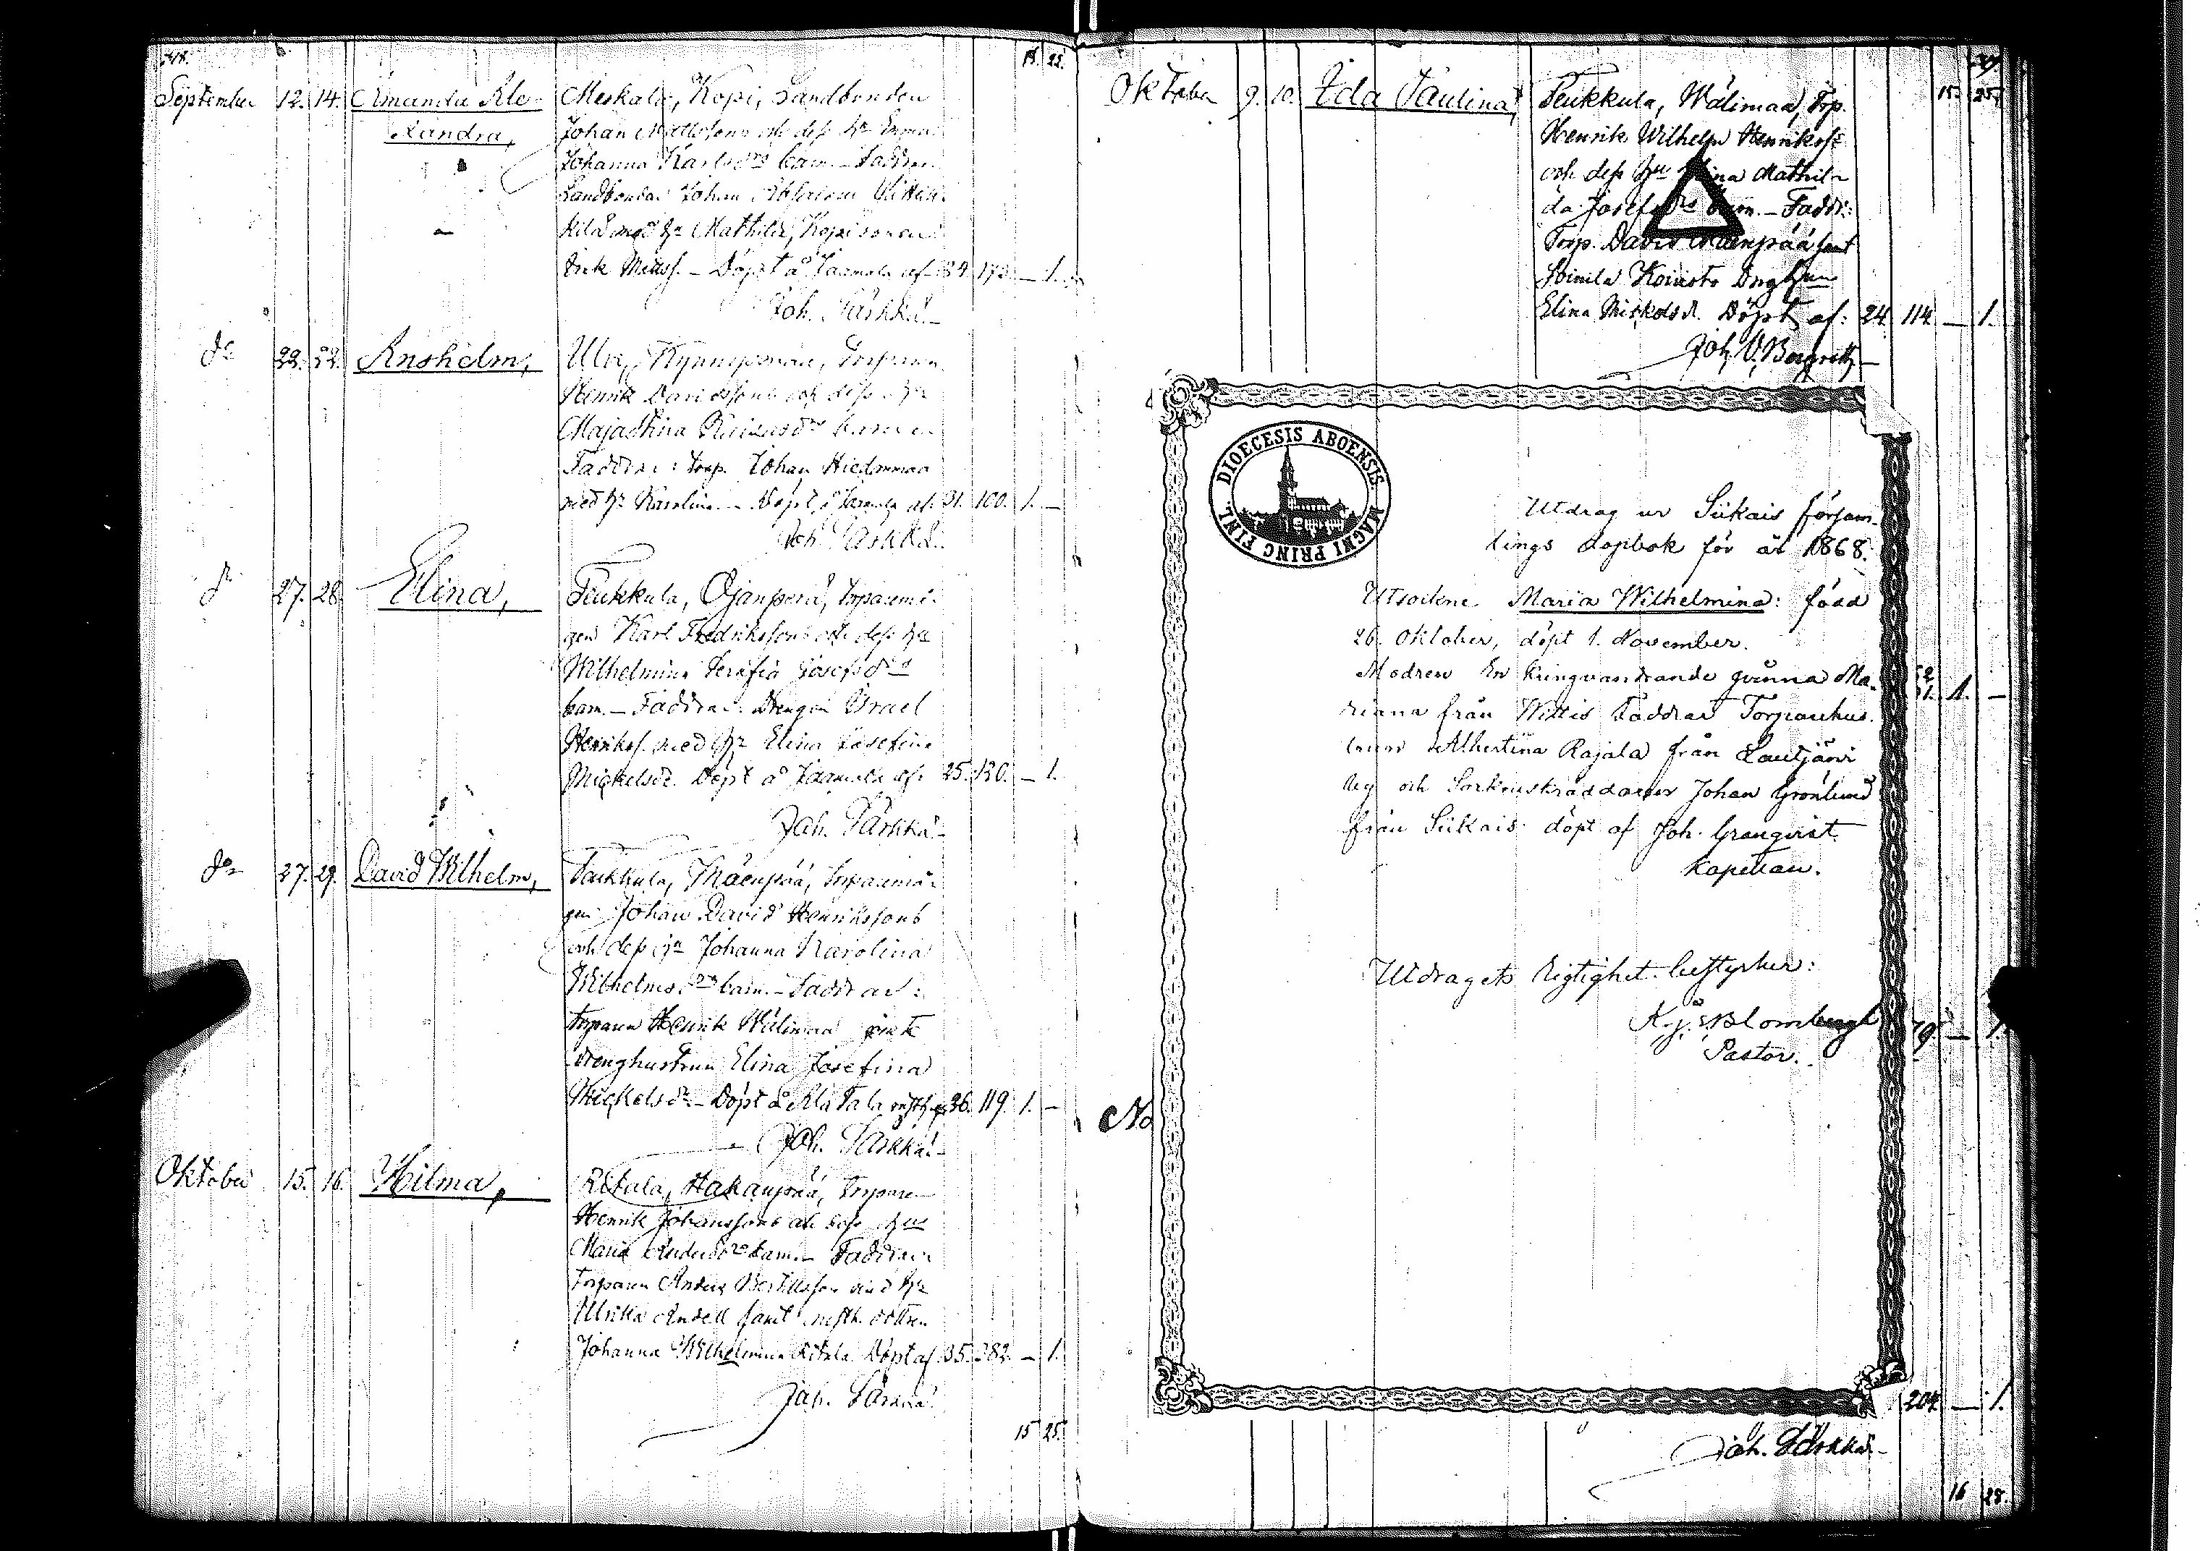 15. 25.
September 12. 14. Amanda Ale-
xandra,
Meskala, Kopi, Landbonden
Johan Mattssons och dess hu Emma
Johanna Karlsdrs barn. Faddrar
Landbonden Johan
kila med hu Mathilda, Kopi sonen
Erik Mattss. — Döpt å Jaamala af 84 173. — 1.
Joh. Särkkä.
do 22. 22. Anshelm,
Ula, Kynnysmaa, Torparen
Henrik Davidssons och dess hu
Maja Stina barn
Faddrar: Torp. Johan Hiedanmaa
med hu Karolina. — Döpt å Jaamala af. 31. 100. 1. —
Joh. Särkkä.
do 27. 28. Elina,
Leukkula, Ojanperä, torparemå-
gen Karl Fredrikssons och dess hu
Wilhelmina Serafia Josefsdrs
barn. — Faddrar: Drengen Israel
Henrikss. med hu Elina Josefina
Mickelsdr. Döpt å Jaamala af. 25. 120. — 1.
Joh. Särkkä.
do 27. 29. David Wilhelm,
Leukkula, Mäenpää, torparemå-
gen Johan David Henrikssons
och dess hu Johanna Karolina
Wilhelmsdrs barn. — Faddrar:
torparen Henrik Wälimaa samt
drenghustrun Elina Josefina
Mickelsdr. — Döpt å Ala Tala 36. 119. 1. —
Joh. Särkkä.
Oktober 15. 16. Hilma,
Ritala, Hakanpää, torparen
Henrik Johanssons och dess hus
Maria Andersdrs barn. — Faddrar
torparen Anders Bertilsson med hu
Ulrika Andell samt dottren
Johanna Wilhelmina Ritala. Döpt af 35. 282. — 1.
Joh. Särkkä.
15 25.
15. 25.
Oktober 9. 10. Ida Paulina,
Leukkula, Wälimaa, Torp.
Henrik Wilhelm Henrikss:
och dess hu Elina Mathil-
da Josefsdrs barn. — Faddr:
Torp. David Mäenpää samt
Soinila Koivisto Dreghun
Elina Mickelsd. Döpt af: 24. 114. — 1.
Joh. V. Bergroth
DIOECESIS ABOENSIS MAGNI PRINC FINL.
Utdrag ur Siikais försam-
lings dopbok för år 1868.
Utsockne Maria Wilhelmina: född
26. Oktober, döpt 1. November.
Modren En kringvandrande qvinna Ma-
riana från Wittis Faddrar Torpanhus-
trun Albertina Rajala från Lautjärvi
by och Sockneskräddaren Johan Grönlund
från Siikais döpt af Joh. Granqvist.
Kapellan.
1. —
Utdragets riktighet bestyrker:
K. J. Blombergh
Pastor.
79. — 1.
No
204. — 1.
Joh. Särkkä.
16 28.